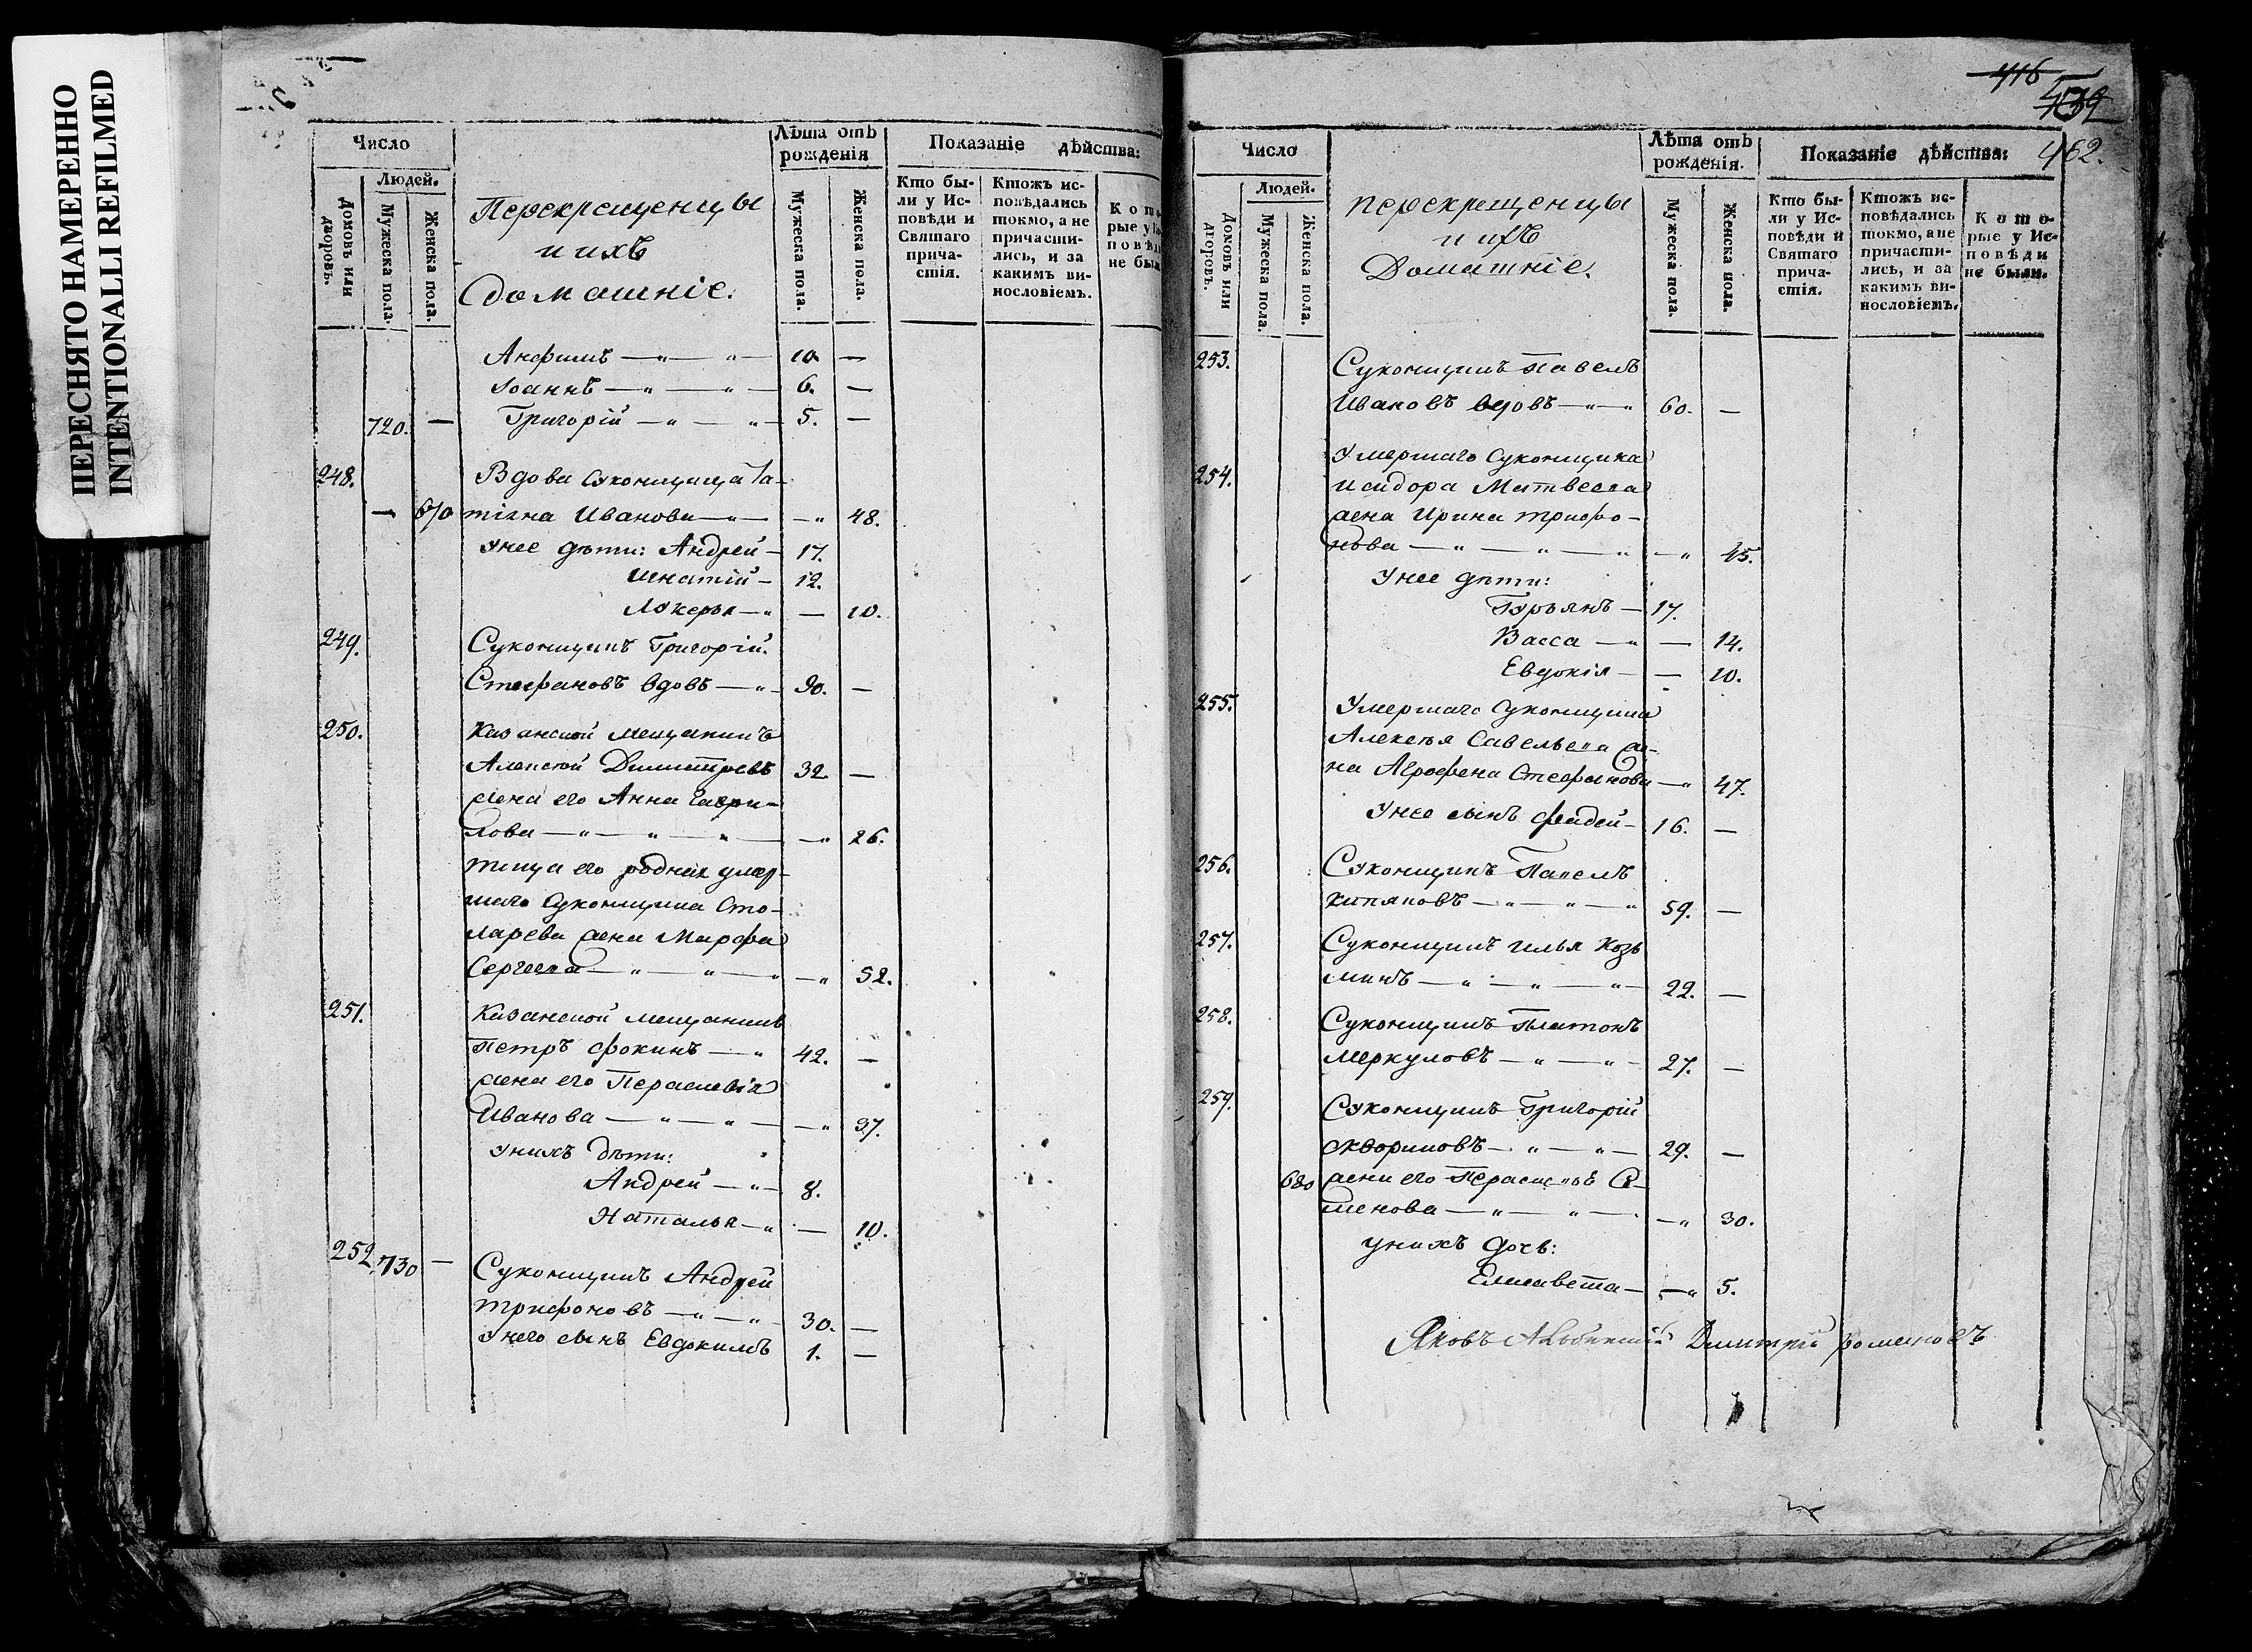 ПЕРЕСНЯТО НАМЕРЕННО
INTENTIONALLI REFILMED
Число
Лѣта отъ рожденія
Показаніе дѣйства:
Людей.
Домовъ или дворовъ.
Мужеска пола.
Женска пола.
Перекрещенцы
и ихъ
домашніе.
Мужеска пола.
Женска пола.
Кто бы-
ли у Ис-
повѣди и
Святаго
прича-
стія.
Ктожъ ис-
повѣдались
токмо, а не
причасти-
лись, и за
какимъ ви-
нословіемъ.
Кото
рые у
повѣ
не бы
Анфимъ — „ — „ — 10. —
Іоаннъ — „ — „ — 6. —
720. — Григорій — „ — „ — 5. —
248. Вдова Суконщица Та-
— 670 тіяна Иванова — „ — „ 48.
У нее дѣти: Андрей — 17.
Игнатій — 12.
Лукерья — „ — 10.
249. Суконщикъ Григорій
Стефановъ вдовъ — „ — 90. —
250. Казанской мещанинъ
Алексей Димитревъ 32. —
жена его Анна Гаври-
лова — „ — „ — „ — „ 26.
теща его родная умер-
шаго Суконщика Сто-
ларева жена Марфа
Сергеева — „ — „ — „ — „ 52.
251. Казанской мещанинъ
Петръ Фокинъ — „ 42. —
жена его Перасковія
Иванова — „ — „ — — „ 37.
У нихъ дѣти:
Андрей — „ — 8.
Наталья — „ — 10.
252. 730 — Суконщикъ Андрей
Трифоновъ — „ — „ — 30. —
У него сынъ Евдокимъ 1. —
416
462.
Число
Лѣта отъ рожденія.
Показаніе дѣйства:
Людей.
Домовъ или дворовъ.
Мужеска пола.
Женска пола.
перекрещенцы
и ихъ
Домашніе.
Мужеска пола.
Женска пола.
Кто бы-
ли у Ис-
повѣди и
Святаго
прича-
стія.
Ктожъ ис-
повѣдались
токмо, а не
причасти-
лись, и за
какимъ ви-
нословіемъ.
Кото-
рые у Ис-
повѣди
не были.
253. Суконщикъ Павелъ
Ивановъ вдовъ — „ — „ 60. —
Умершаго Суконщика
254. Исидора Матвеева
жена Ирина Трифо-
нова — „ — „ — „ — „ 45.
У нее дѣти:
Гурьянъ — 17.
Васса — „ — 14.
Евдокія — — 10.
255. Умершаго Суконщика
Алексѣя Савельева же-
на Агрофена Стефанова — „ 47.
У нее сынъ Фадей — 16. —
256. Суконщикъ Павелъ
Кипяновъ — „ — „ — „ 59. —
257. Суконщикъ Илья Козь
минъ — „ — „ — „ — 22. —
258. Суконщикъ Платонъ
Меркуловъ — „ — „ — 27. —
259. Суконщикъ Григорій
Скворцовъ — „ — „ — 29. —
680 жена его Перасковья Се-
менова — „ — „ — — „ 30.
У нихъ дочь:
Елисавета — — „ 5.
Яковъ Димитрій